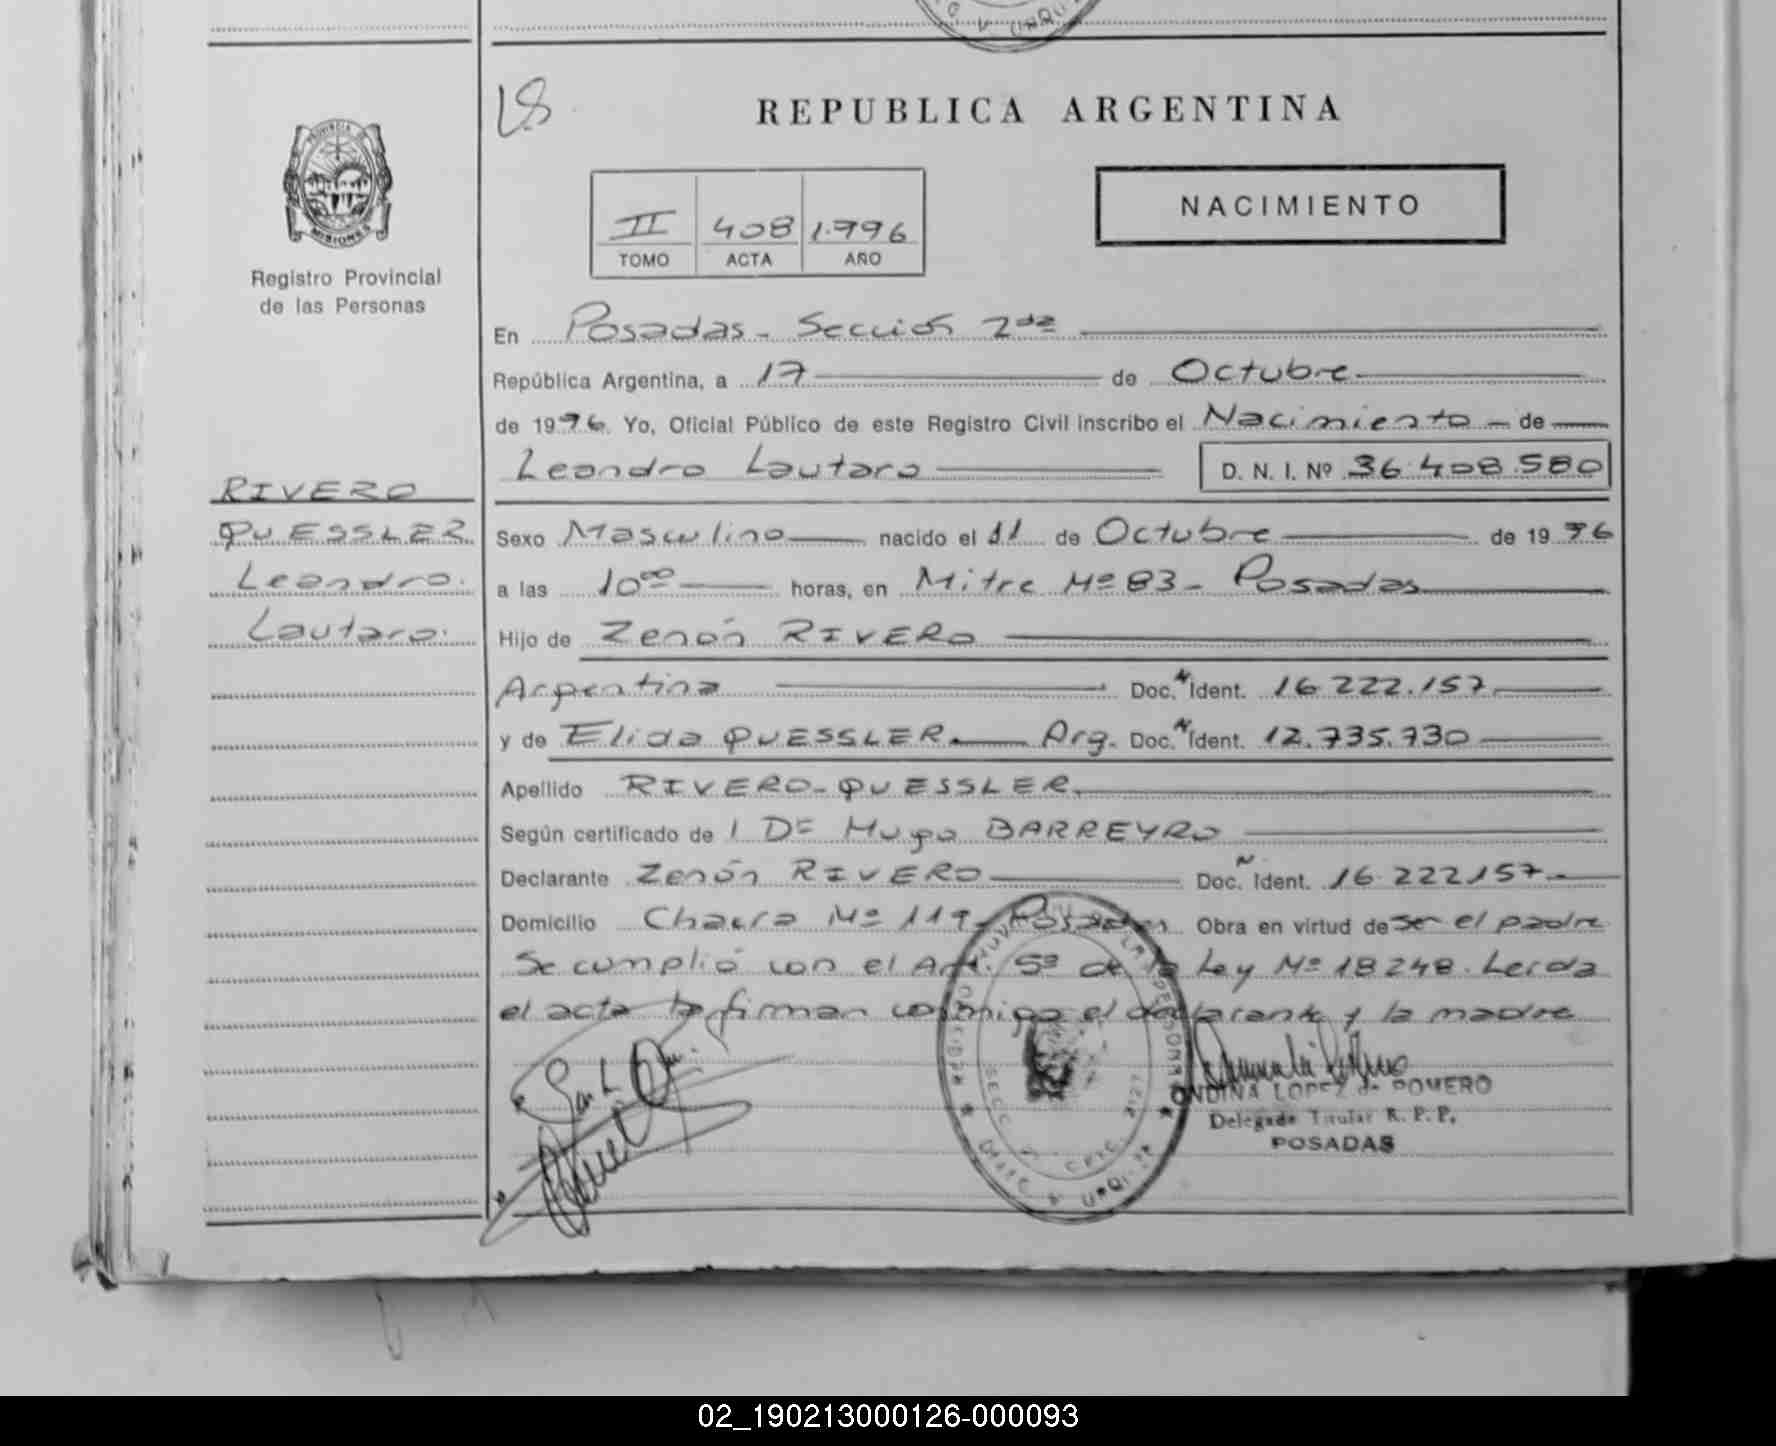 LS
REPUBLICA ARGENTINA
PROVINCIA DE
MISIONES
Registro Provincial
de las Personas
II 408 1.996
TOMO ACTA AÑO
NACIMIENTO
En Posadas - Sección 2da
República Argentina, a 17 de Octubre
de 1996. Yo, Oficial Público de este Registro Civil inscribo el Nacimiento - de
Leandro Lautaro D. N. I. Nº 36.408.580
RIVERO
QUESSLER
Leandro
Lautaro.
Sexo Masculino nacido el 11 de Octubre de 1996
a las 10 00 horas, en Mitre Nº 83 - Posadas
Hijo de Zenón RIVERO
Argentina Doc. N Ident. 16.222.157
y de Elida QUESSLER. Arg. Doc. N Ident. 12.735.730
Apellido RIVERO - QUESSLER.
Según certificado de 1 Dr Hugo BARREYRO
Declarante Zenón RIVERO Doc. N Ident. 16.222.157.-
Domicilio Chacra Nº 119 - Posadas Obra en virtud de ser el padre
Se cumplió con el Art. 5º de la Ley Nº 18248. Leída
el acta la firman conmigo el declarante y la madre
ONDINA LOPEZ de ROMERO
Delegada Titular R. P. P.
POSADAS
02_190213000126-000093